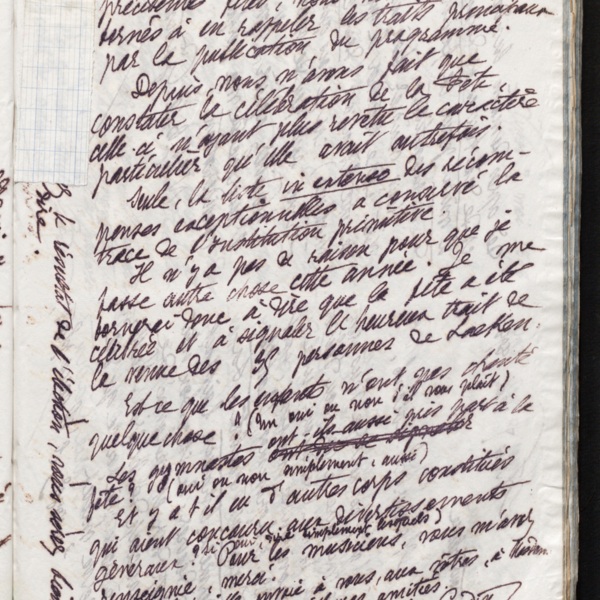 précédentes
bornés à en rappeler les traits primordiaux
par la publication du programme.
Depuis, nous n'avons fait que
constater la célébration de la fête,
celle-ci n'ayant plus revêtu le caractère
particulier qu'elle avait autrefois.
Seule, la liste in extenso des récom-
penses exceptionnelles a conservé la
trace de l'institution primitive.
Il n'y a pas de raison pour que je
fasse autre chose cette année. Je me
bornerai donc à dire que la fête a été
célébrée et à signaler l'heureux trait de
la venue des 25 personnes de Laeken.
Est-ce que les enfants n'ont pas chanté
quelque chose ? (Un oui ou non s'il vous plaît)
Les gymnastes ont-ils aussi pris part à la
fête ? (oui ou non simplement, aussi)
Et y a-t-il eu d'autres corps constitués
qui aient concouru aux divertissements
généraux ?
Pour les musiciens, vous m'avez
renseigné, merci.
à vous, aux vôtres, à
amitiés.
le résultat de l'élection, vous serez bien